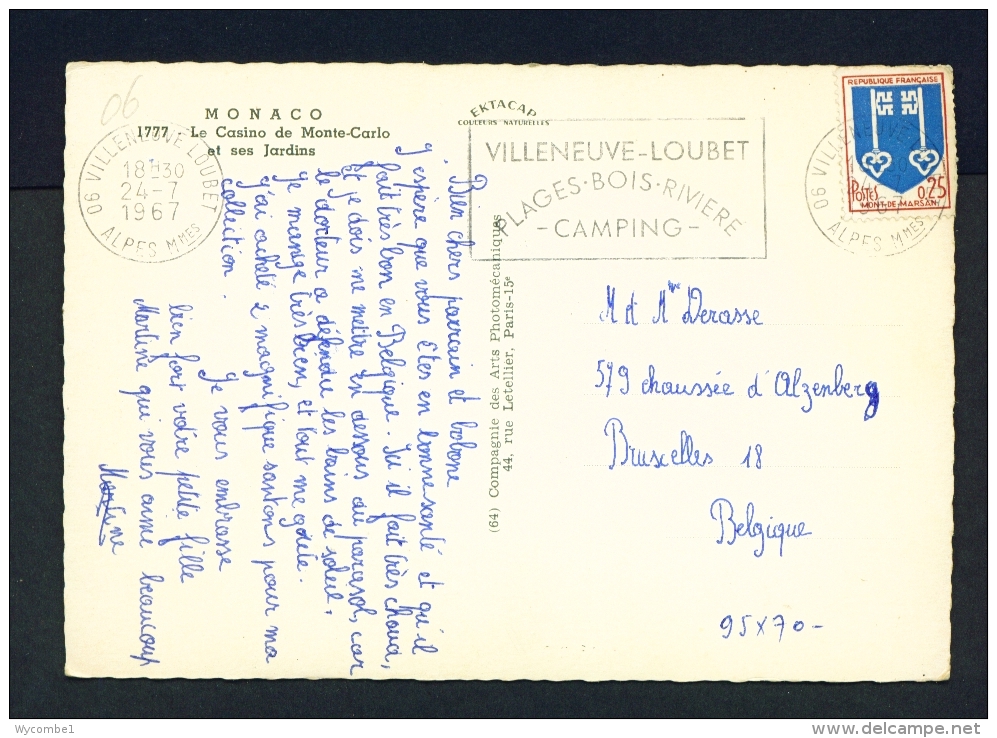 06
MONACO
1777 - Le Casino de Monte-Carlo
et ses Jardins
EKTACAP
COULEURS NATURELLES
06 VILLENEUVE LOUBET
18H30
24-7
1967
ALPES MMES
VILLENEUVE-LOUBET
PLAGES·BOIS·RIVIERE
-CAMPING-
REPUBLIQUE FRANÇAISE
POSTES
0,25
MONT-DE-MARSAN
06 VILLENEUVE
ALPES MMES
Bien chers parrain et bobone
J'espère que vous êtes en bonne santé et qu'il
fait très bon en Belgique. Ici il fait très chaud,
et je dois me mettre en dessous du parasol, car
le docteur a défendu les bains de soleil.
Je mange très bien, et tout me goûte.
J'ai acheté 2 magnifique santons pour ma
collection.
Je vous embrasse
bien fort votre petite fille
Martine qui vous aime beaucoup
Martine
(64) Compagnie des Arts Photomécaniques
44, rue Letellier, Paris-15e
M et Mme Derasse
579 chaussée d'Alzenberg
Bruxelles 18
Belgique
95x70-
Wycombe1
delcampe.net